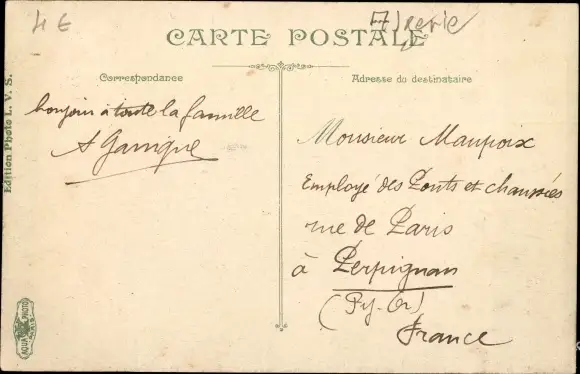 4 €
Algerie
CARTE POSTALE
Correspondance
Adresse du destinataire
bonjour à toute la famille
Monsieur Maupoix
Employé des Ponts et chaussées
rue de Paris
à Perpignan
(Py. Or)
France
Edition Photo L. V. S.
AQUA PHOTO
PARIS